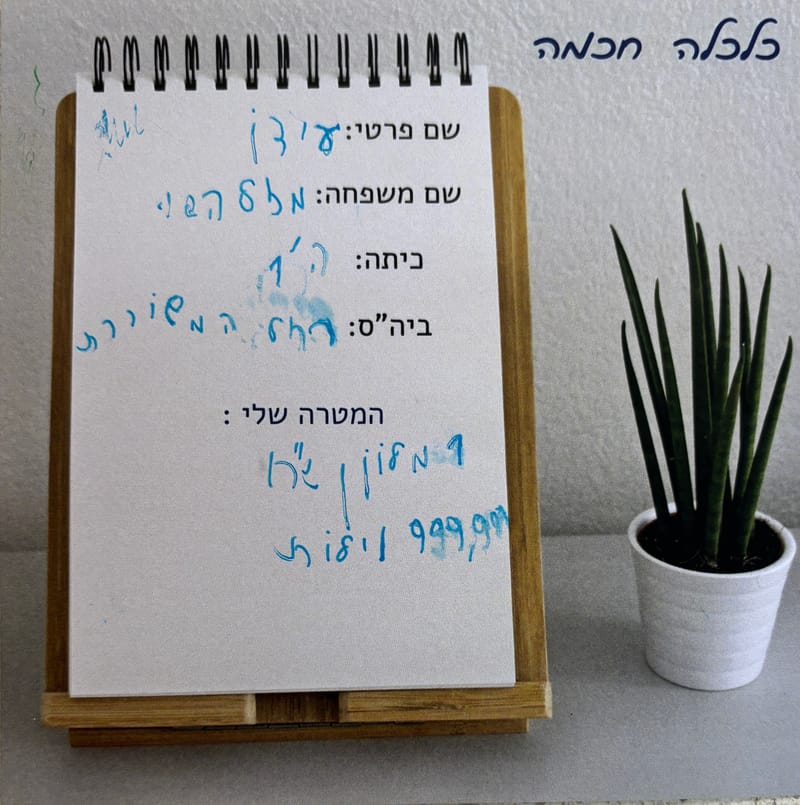 כלכלה חכמה
שם פרטי: עידן
שם משפחה:
כיתה: ה'
ביה"ס: רחל המשוררת
המטרה שלי :
מליון
999,999 וילות